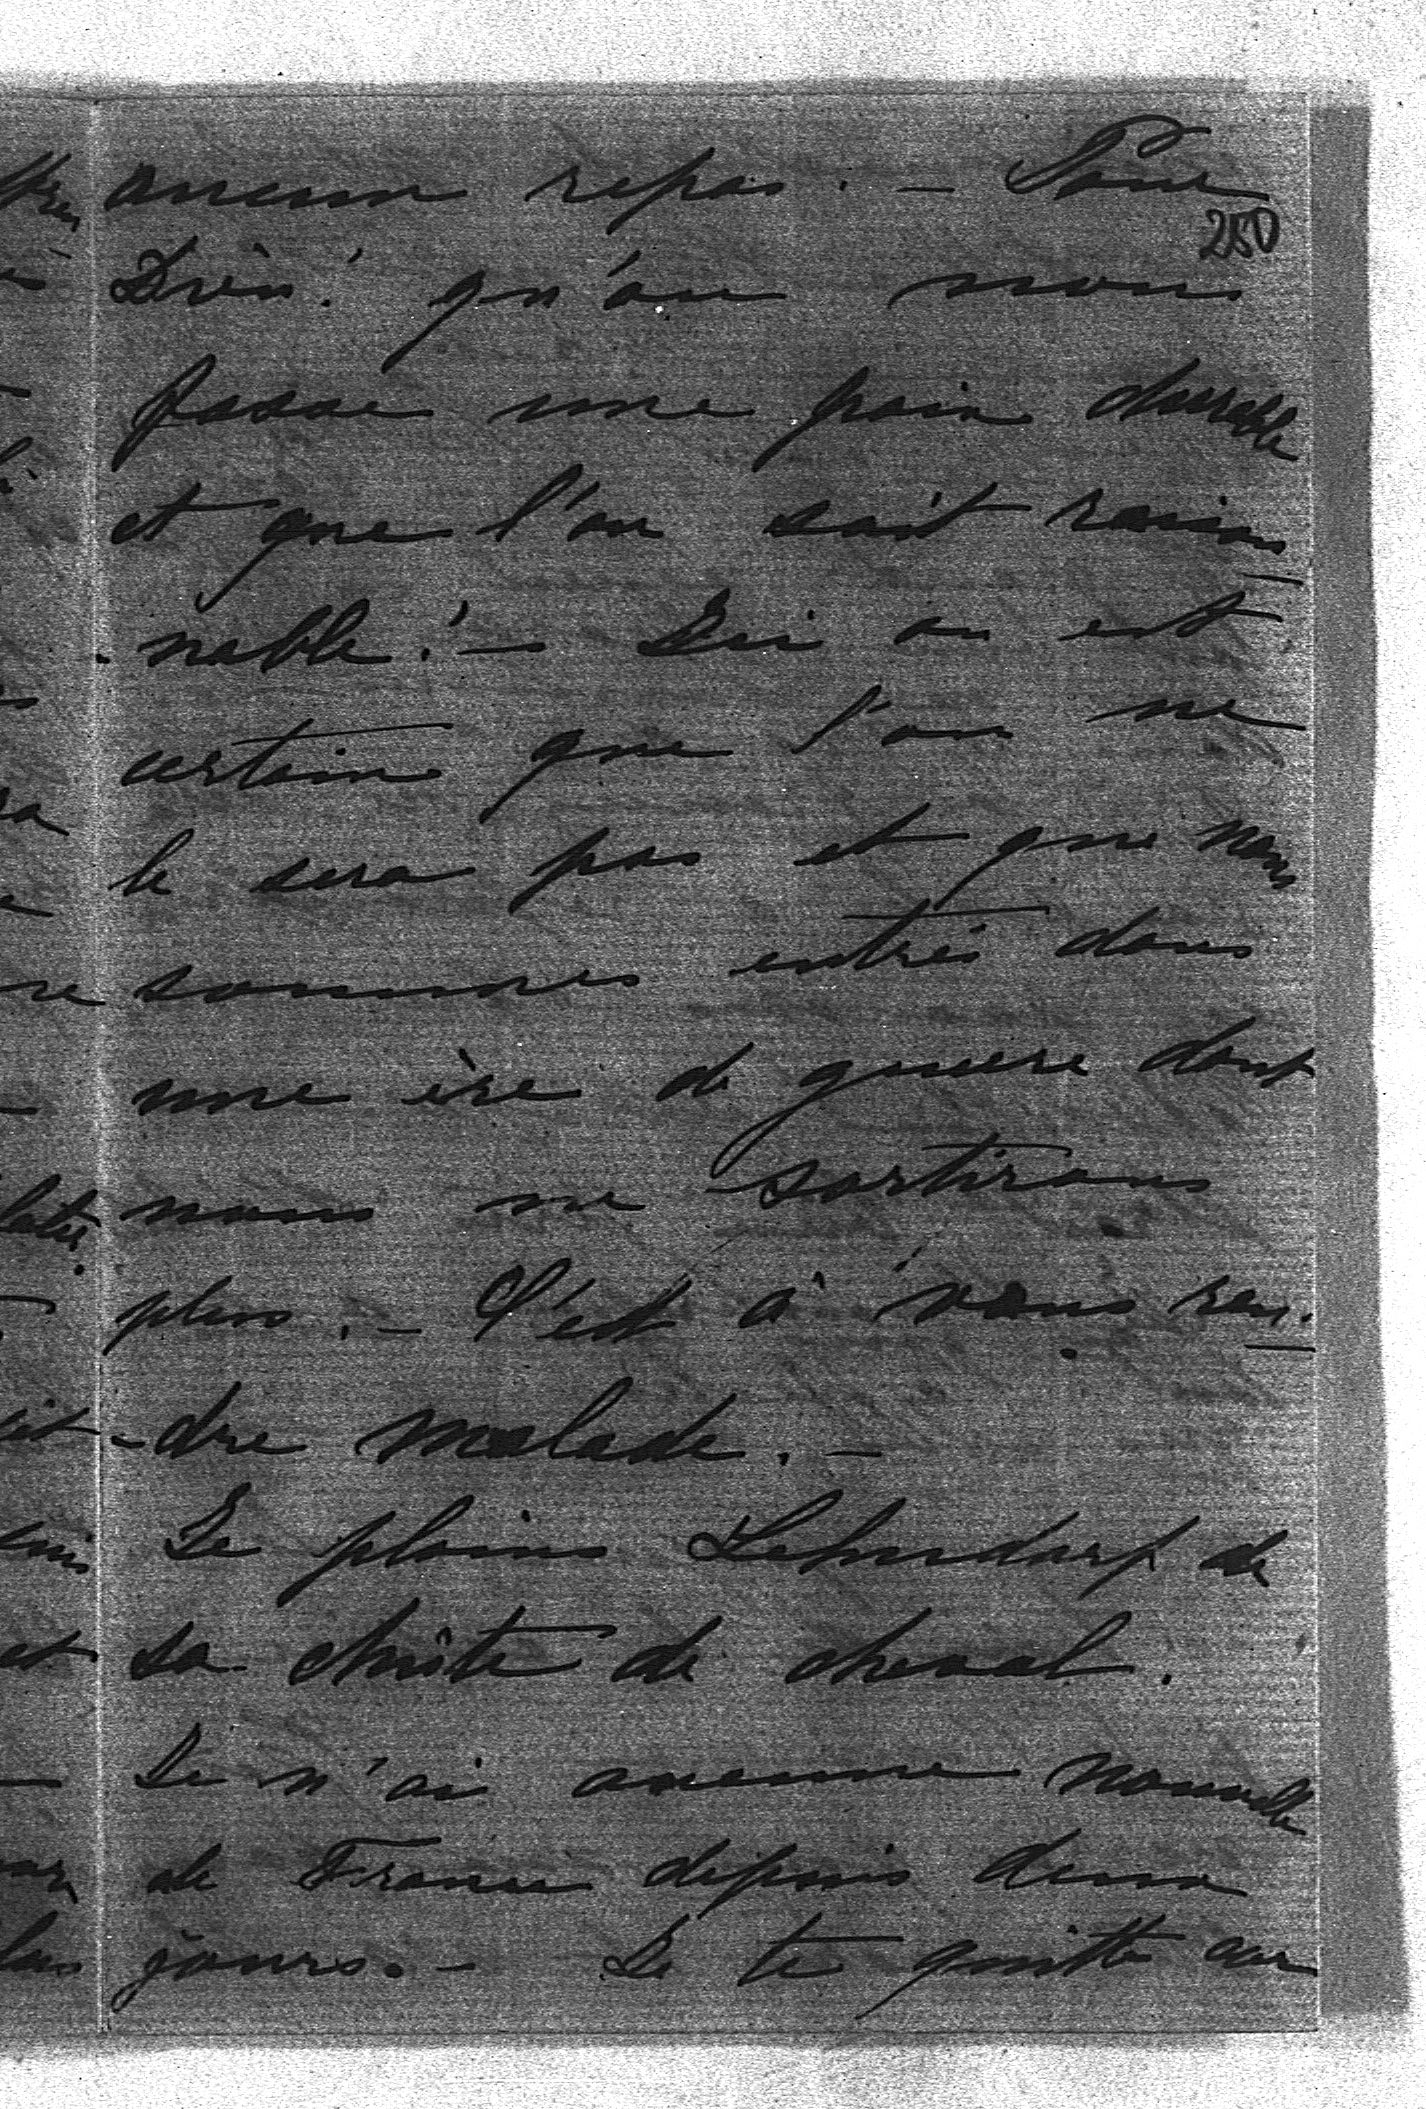 aucun repos. — Pour
250
Dieu! qu'on nous
fasse une paix durable
et que l'on soit raison
nable! — Ici on est
certain que l'on ne
le sera pas et que nous
sommes entrés dans
une ère de guerre dont
nous ne sortirons
plus. — C'est à vous ren-
-dre malade. —
Je plains Lehndorf de
sa chûte de cheval.
Je n'ai aucune nouvelle
de France depuis deux
jours. — Je te quitte car